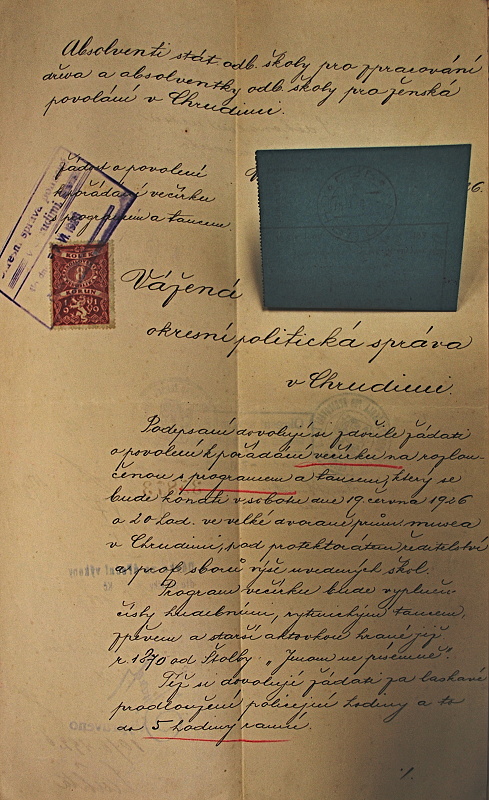 Absolventi stát. odb. školy pro zpracování
dřeva a absolventky odb. školy pro ženská
povolání v Chrudimi.
Žádost o povolení
k pořádání večírku
s programem a tancem.
26.
KOLEK
8
KORUN
Vážená
okresní politická správa
v Chrudimi.
Podepsaní dovolují si zdvořile žádati
o povolení k pořádání večírku na rozlou-
čenou s programem a tancem, který se
bude konati v sobotu dne 19. června 1926
o 20 hod. ve velké dvoraně prům. musea
v Chrudimi, pod protektorátem ředitelství
a prof. sborů výše uvedených škol.
Program večírku bude vyplněn
čísly hudebními, rytmickým tancem,
zpěvem a starší aktovkou hranou již
r. 1870 od Štolby „Jmam ne písemně".
Též si dovolují žádati za laskavé
prodloužení policejní hodiny a to
do 5 hodiny ranní.
./.